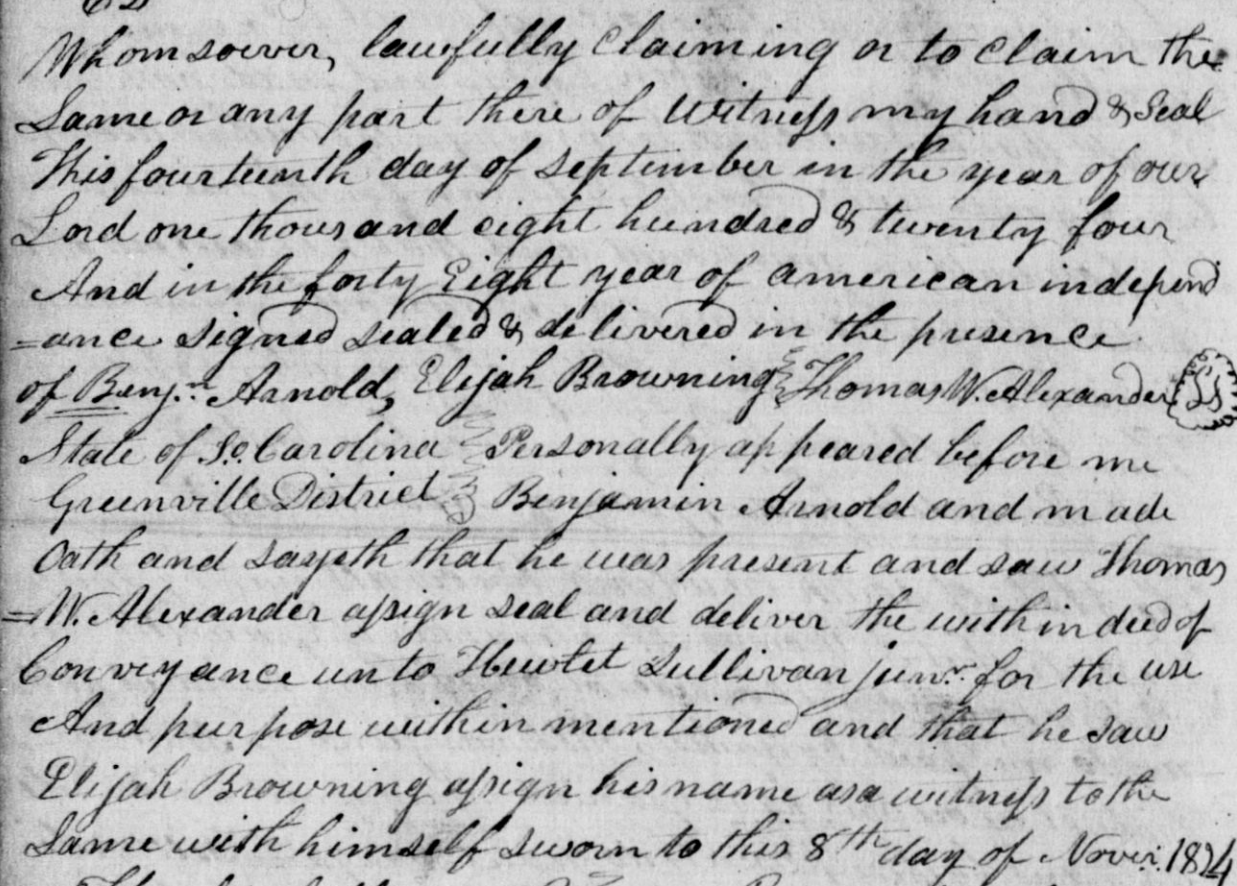 Whomsoever, lawfully claiming or to claim the
Same or any part there of Witness my hand & Seal
This fourteenth day of September in the year of our
Lord one thousand eight hundred & twenty four
And in the forty Eight year of american independ
=ance signed sealed & delivered in the presence
of Benjn. Arnold, Elijah Browning Thomas W. Alexander LS
State of So. Carolina Personally appeared before me
Greenville District Benjamin Arnold and made
Oath and sayeth that he was present and saw Thomas
=W. Alexander assign seal and deliver the within deed of
Conveyance unto Hewlet Sullivan junr. for the use
And purpose within mentioned and that he saw
Elijah Browning assign his name as a witness to the
Same with himself sworn to this 8th day of Novr. 1824